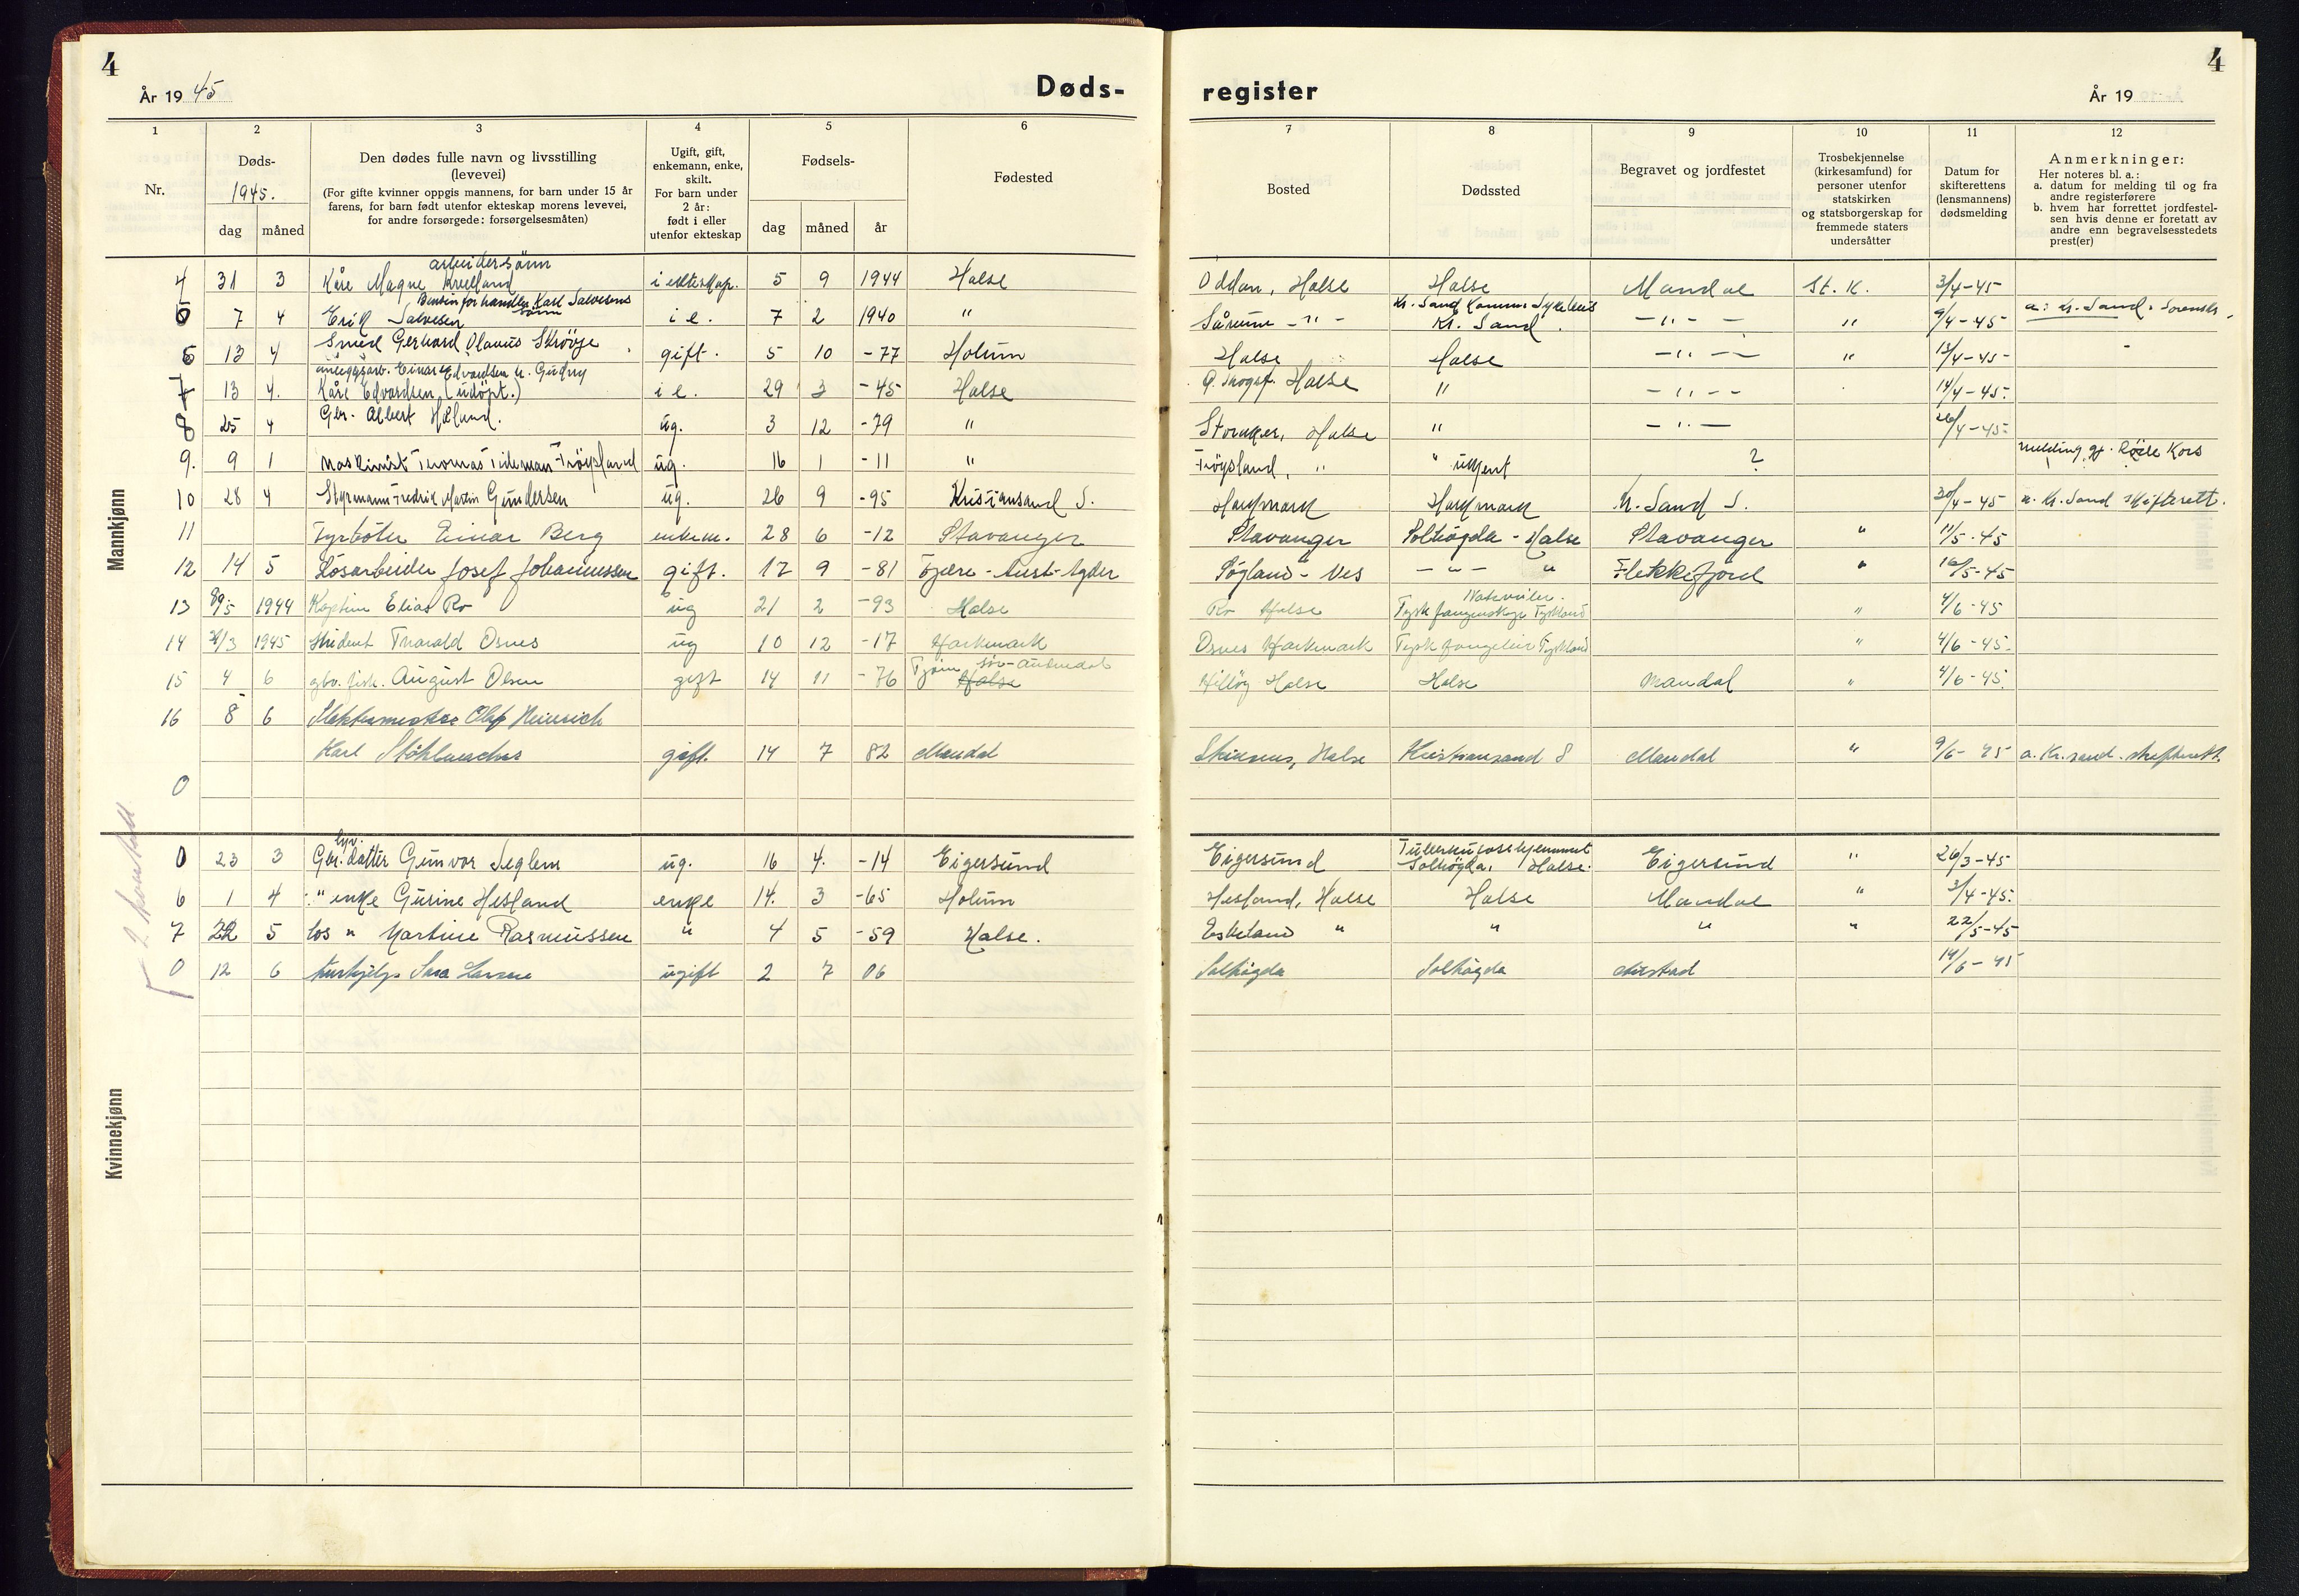 4
År 19 45
Døds-
register
År 19
4
1
2
3
4
5
6
7
8
9
10
11
12
Nr.
Døds-
1945.
dag
måned
Den dødes fulle navn og livsstilling
(levevei)
(For gifte kvinner oppgis mannens, for barn under 15 år
farens, for barn født utenfor ekteskap morens levevei,
for andre forsørgede: forsørgelsesmåten)
Ugift, gift,
enkemann, enke,
skilt.
For barn under
2 år:
født i eller
utenfor ekteskap
Fødsels-
dag
måned
år
Fødested
Bosted
Dødssted
Begravet og jordfestet
Trosbekjennelse
(kirkesamfund) for
personer utenfor
statskirken
og statsborgerskap for
fremmede staters
undersåtter
Datum for
skifterettens
(lensmannens)
dødsmelding
Anmerkninger:
Her noteres bl. a.:
a. datum for melding til og fra
andre registerførere
b. hvem har forrettet jordfestel-
sen hvis denne er foretatt av
andre enn begravelsesstedets
prest(er)
Mannkjønn
arbeidersönn
4 31 3 Kåre Magne i ekteskap. 5 9 1944 Halse Oddan, Halse Halse Mandal St. K. 3/4-45
Bensinforhandler Karl Salvesens sönn Kr. Sand Komm. Sykehus
5 7 4 Erik Salvesen i e. 7 2 1940 " -"- Kr. Sand -"- " 9/4-45 a: Kr. Sand. Sorenskr.
6 13 4 Smed Gerhard Olaus Ströyje gift. 5 10 -77 Holum Halse Halse -"- " 13/4-45
anleggsarb. Einar Edvardsen u. Gudny
7 13 4. Kåre Edvardsen (udöpt.) i e. 29 3 -45 Halse Halse " -"- 14/4-45.
8 25 4 Gbr. Albert ug. 3 12 -79 " Storaker, Halse " -"- 26/4-45.
9. 9 1 Maskinist Thomas Tideman Tröysland ug. 16 1 -11 " Tröysland, " " ukjent ? melding gj. Röde Kors
10 28 4 Styrmann Fredrik Martin Gundersen ug. 26 9 -95 Kristiansand S. Harkmark Harkmark Kr. Sand S. 30/4-45 a. Kr. Sand Skifterett.
11 Fyrböter Einar Berg enkem. 28 6 -12 Stavanger Stavanger Solhögda - Halse Stavanger " 11/5-45
12 14 5 Lösarbeider Josef Johannessen gift. 17 9 -81 Fjære - Aust-Agder Søgland - Nes -"- " Flekkefjord " 16/5-45
Natzweiler.
13 1944 Kaptein Elias Ro ug 21 2 -93 Halse Ro Halse Tysk fangenskap Tyskland " 4/6-45
14 1945 Student Tharald Osnes ug 10 12 -17 Harkmark Osnes Harkmark Tysk fangeleir Tyskland " 4/6-45.
15 4 6 gbr. fisk. August Olsen gift 14 11 -76 Halse Sør-Audnedal Hilløy Halse Halse Mandal " 4/6-45.
16 8 6 Slaktermester Olaf Heinrich
Karl gift. 14 7 82 Mandal Halse Kristiansand S Mandal " 9/6-45 a. Kr.sand. skifterett.
0
Kvinnekjønn
0 23 3 Gbr. datter Gunvor Seglem ug. 16 4. -14 Eigersund Eigersund Tuberkulosehjemmet Solhögda, Halse. Eigersund " 26/3-45
6 1 4 " enke Gurine Hesland enke 14. 3 -65 Holum Hesland, Halse Halse Mandal " 3/4-45.
7 22 5 los " Martine Rasmussen " 4 5 -59 Halse. Eskeland " " " " 22/5-45
0 12 6 Sara Larsen ugift 2 7 06 Solhögda Solhögda 14/6-45